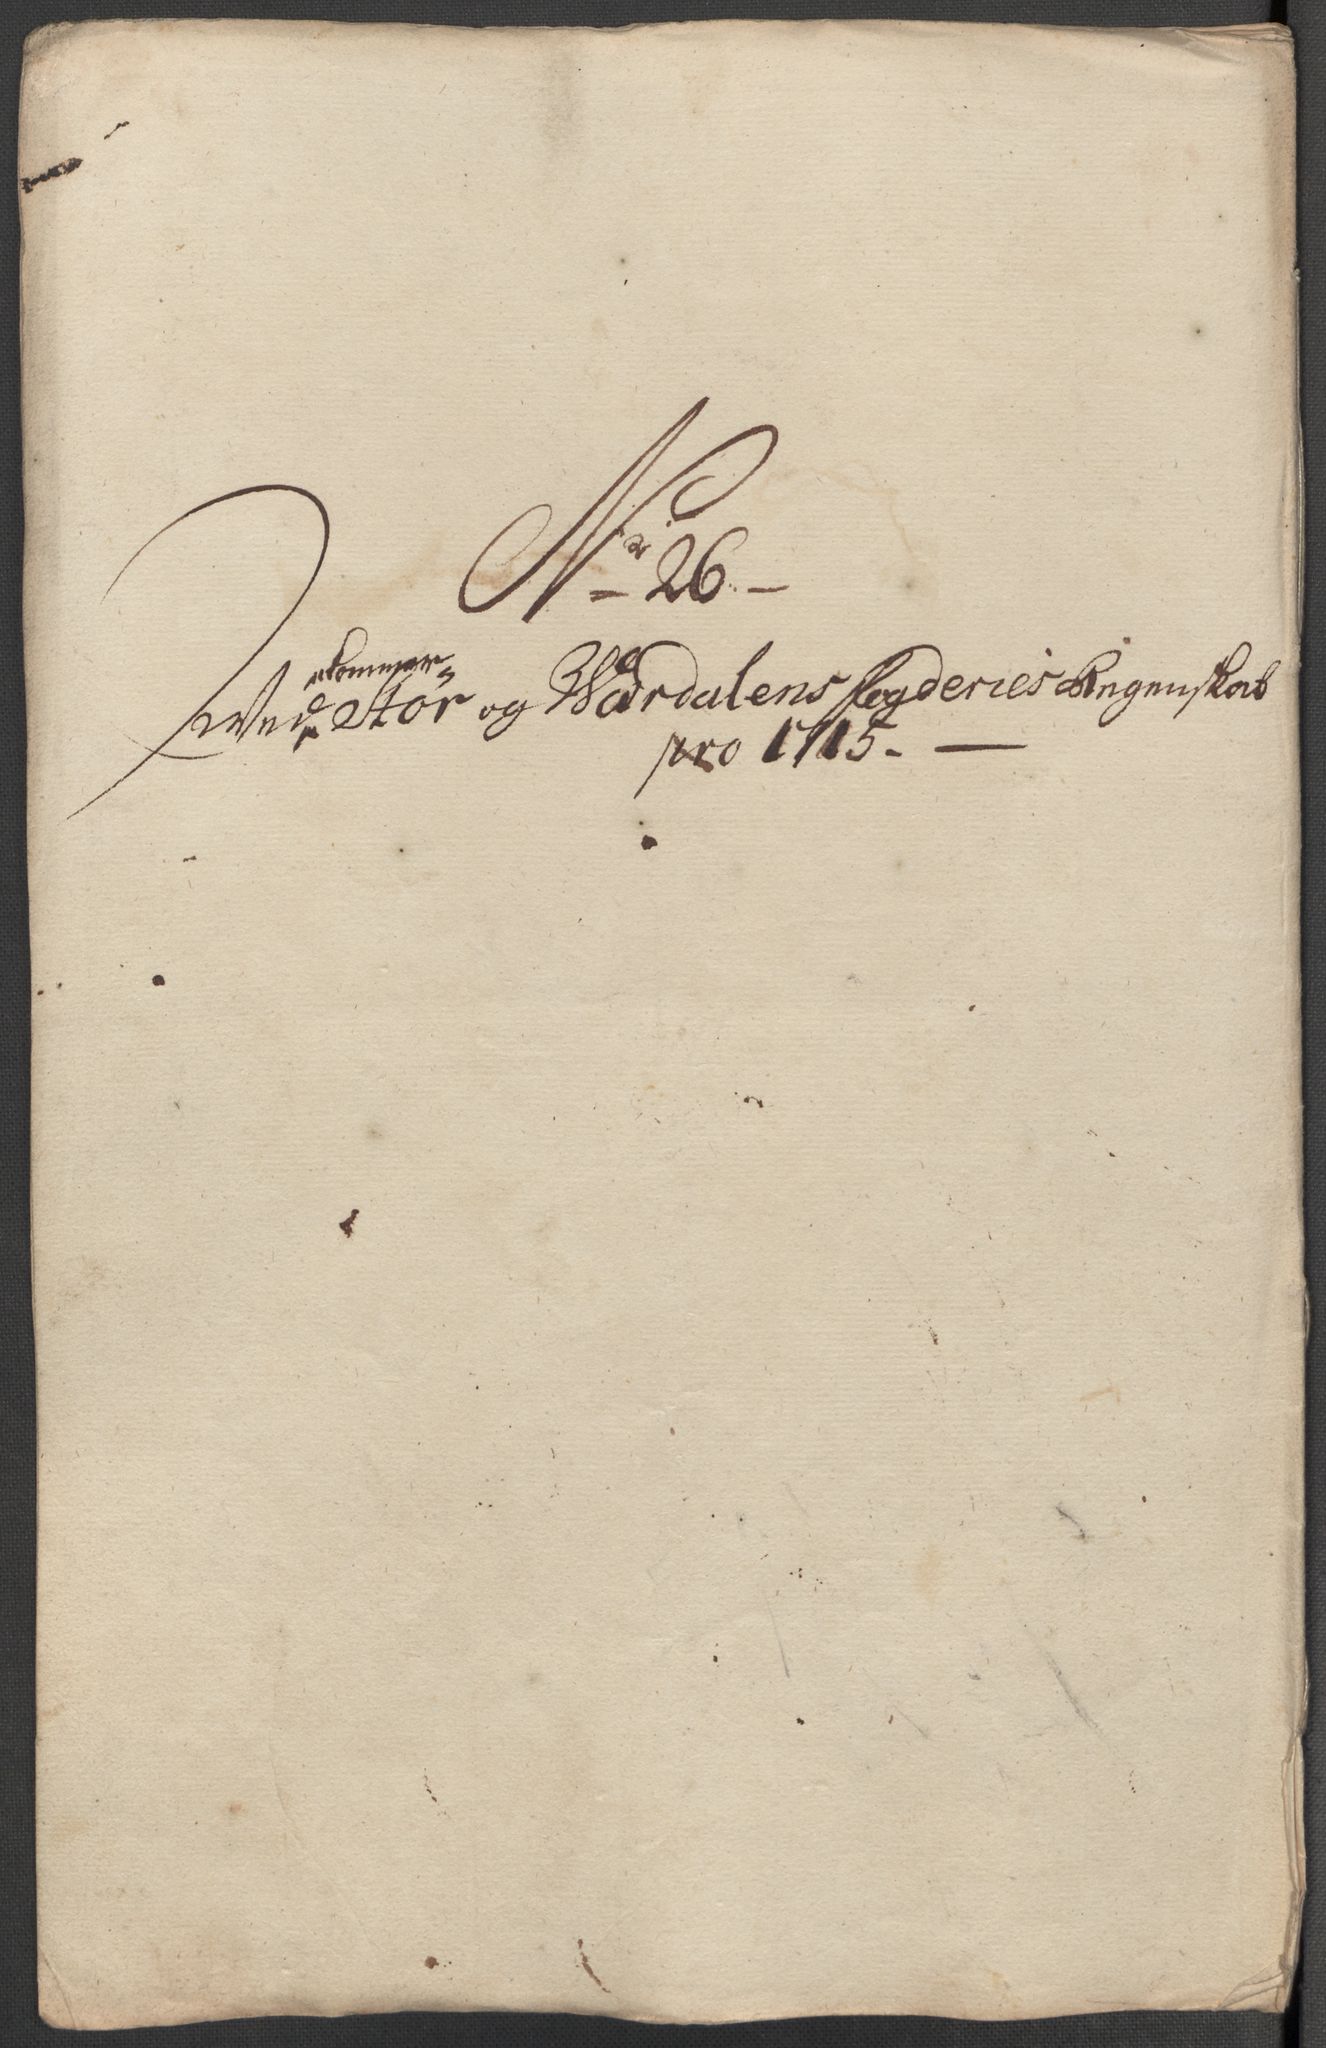 No 26.
Vedkommer Stör og Wærdalens fogderies Regenskab
pro 1715.